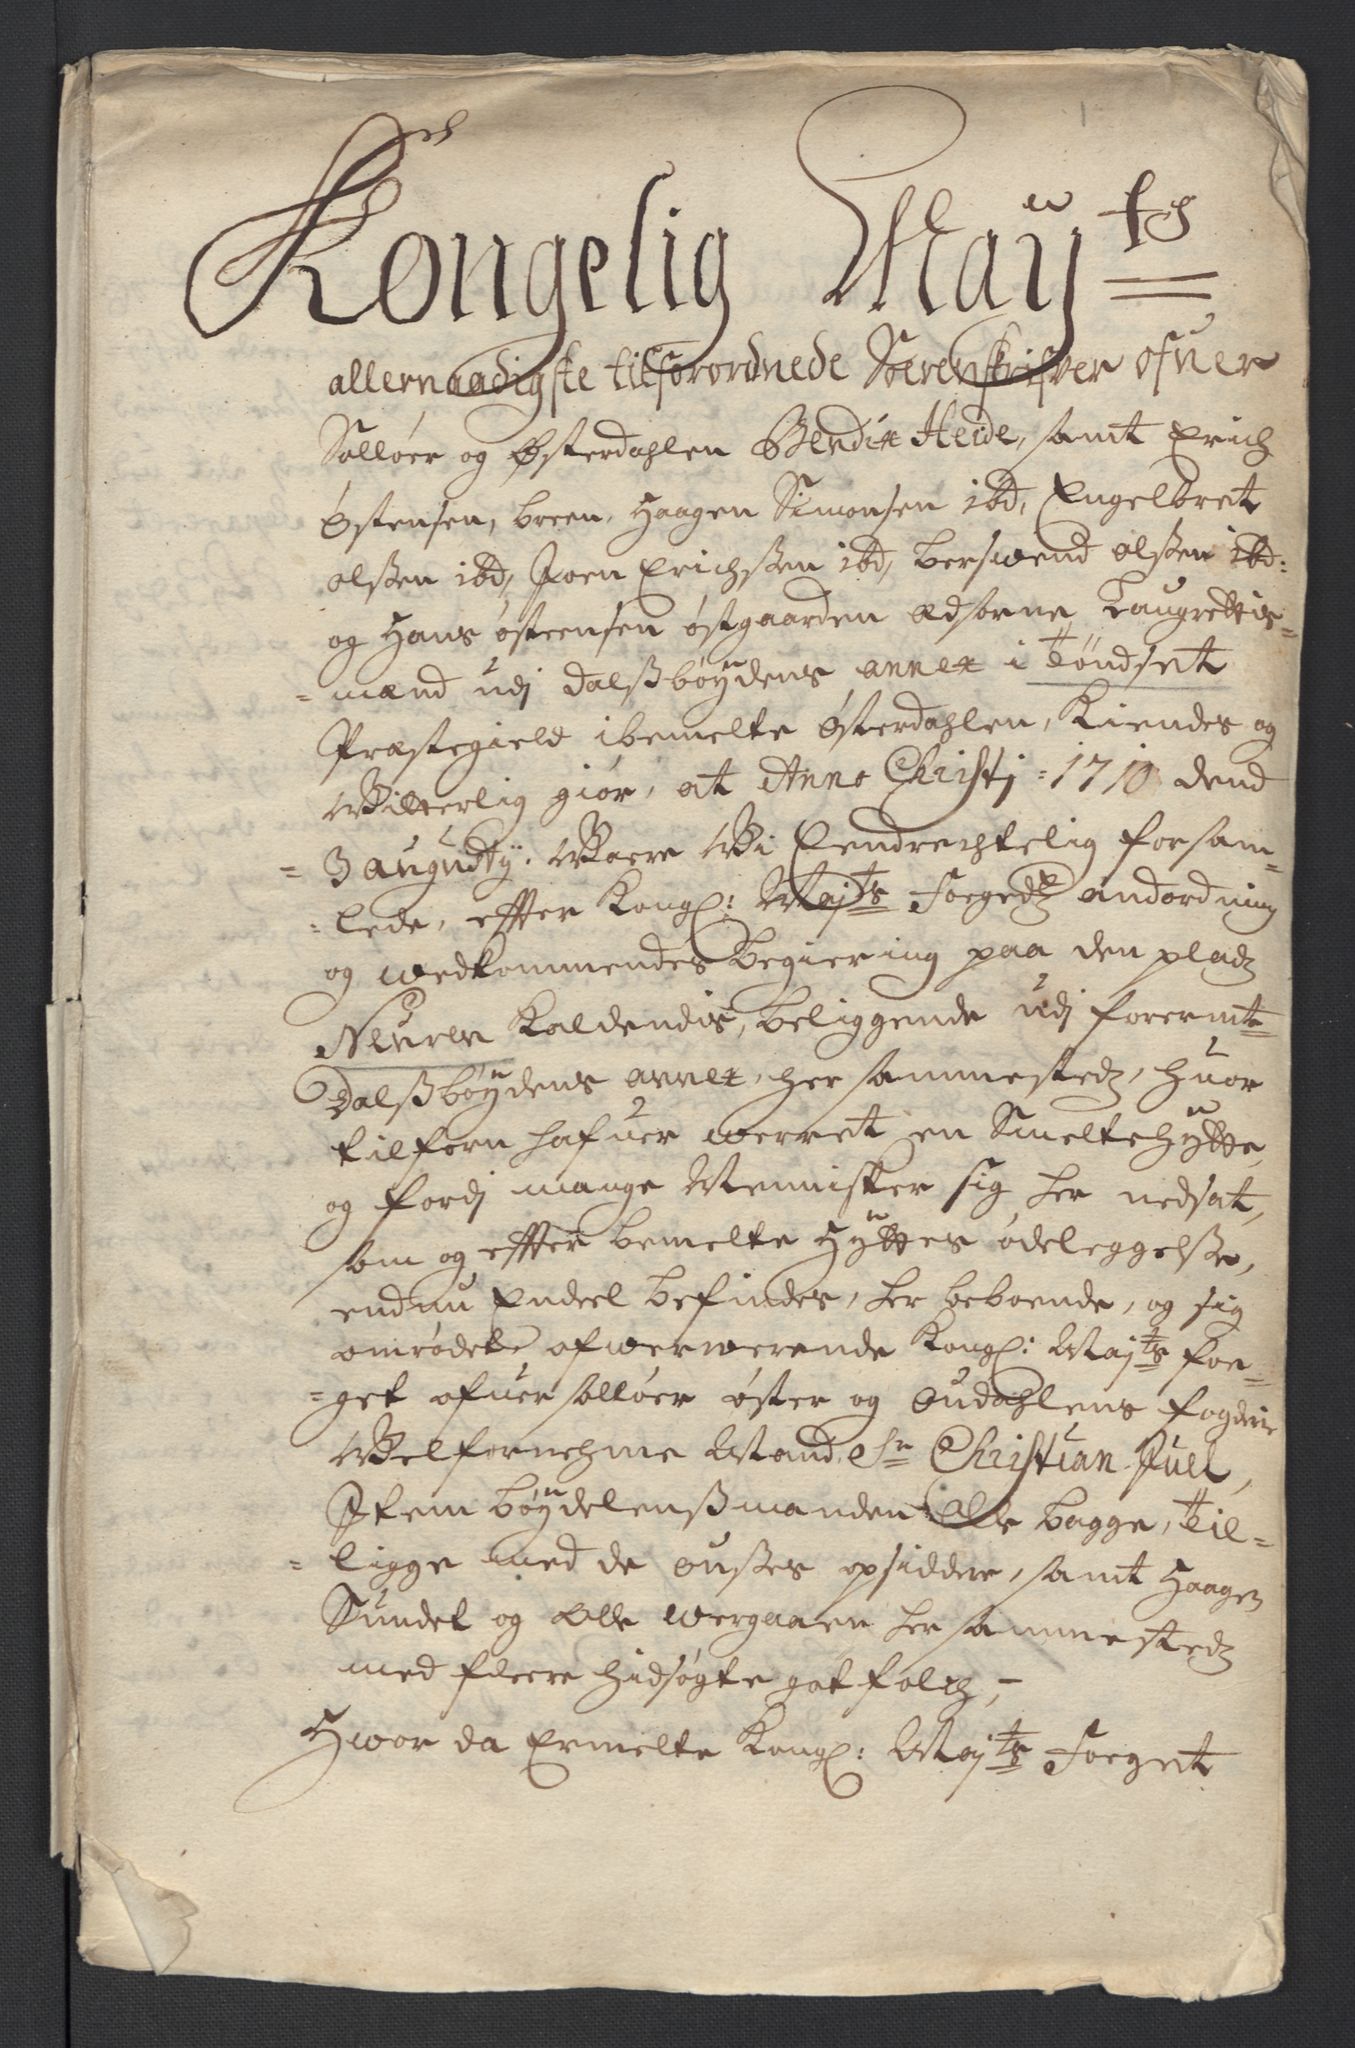 Kongelig Maÿts
allernaadigste tilforordnede Soerenskrifver ofver
Solløer og Østerdahlen Bendix Heide, samt Erich
Østensen, breen, Haagen Simonsen ibd, Engelbret
olssen ibd, Joen Erichssen ibd, berswend olssen ibd:
og Hans østensen østgaardenædsorne Laugrettis=
=mænd udj Dalssbøÿdens annex i Töndset
Præstegield ibemelte Østerdahlen, Kiendes og
Witterlig giør, at Anno Christj =1710 dend
=3 augustÿ. Waere Wi Eendrechtelig forsam=
=lede, effter Kongl: Majts Foegedz andordning
og wedkommendes begiering paa den pladz
Neüren Kaldendis, beliggende udj forermte
Dalssbøÿdens annex, her sammestedz, huor
tilforn hafuer werret en Smeltehÿtte,
og fordj mange Mennisker sig her nedsat,
som og effter bemelte Hÿttes ødeleggelsse,
endnu Endeel befindes, her beboende, og sig
omrødet, ofwerwerende Kongl: Majts foe=
=get ofuer solløer øster og oudahlens fogderie
Welfornehme Mand Sr Christian Juel,
Item bøÿdelenssmanden Olle bagge, Til=
=ligge med de ousses opsiddere, samt Haagen
Sundet og Olle wergaaen her sammestedz
med fleere hidsøgte got folch,-
Hwor da Ermelte Kongl: Majts Foeget